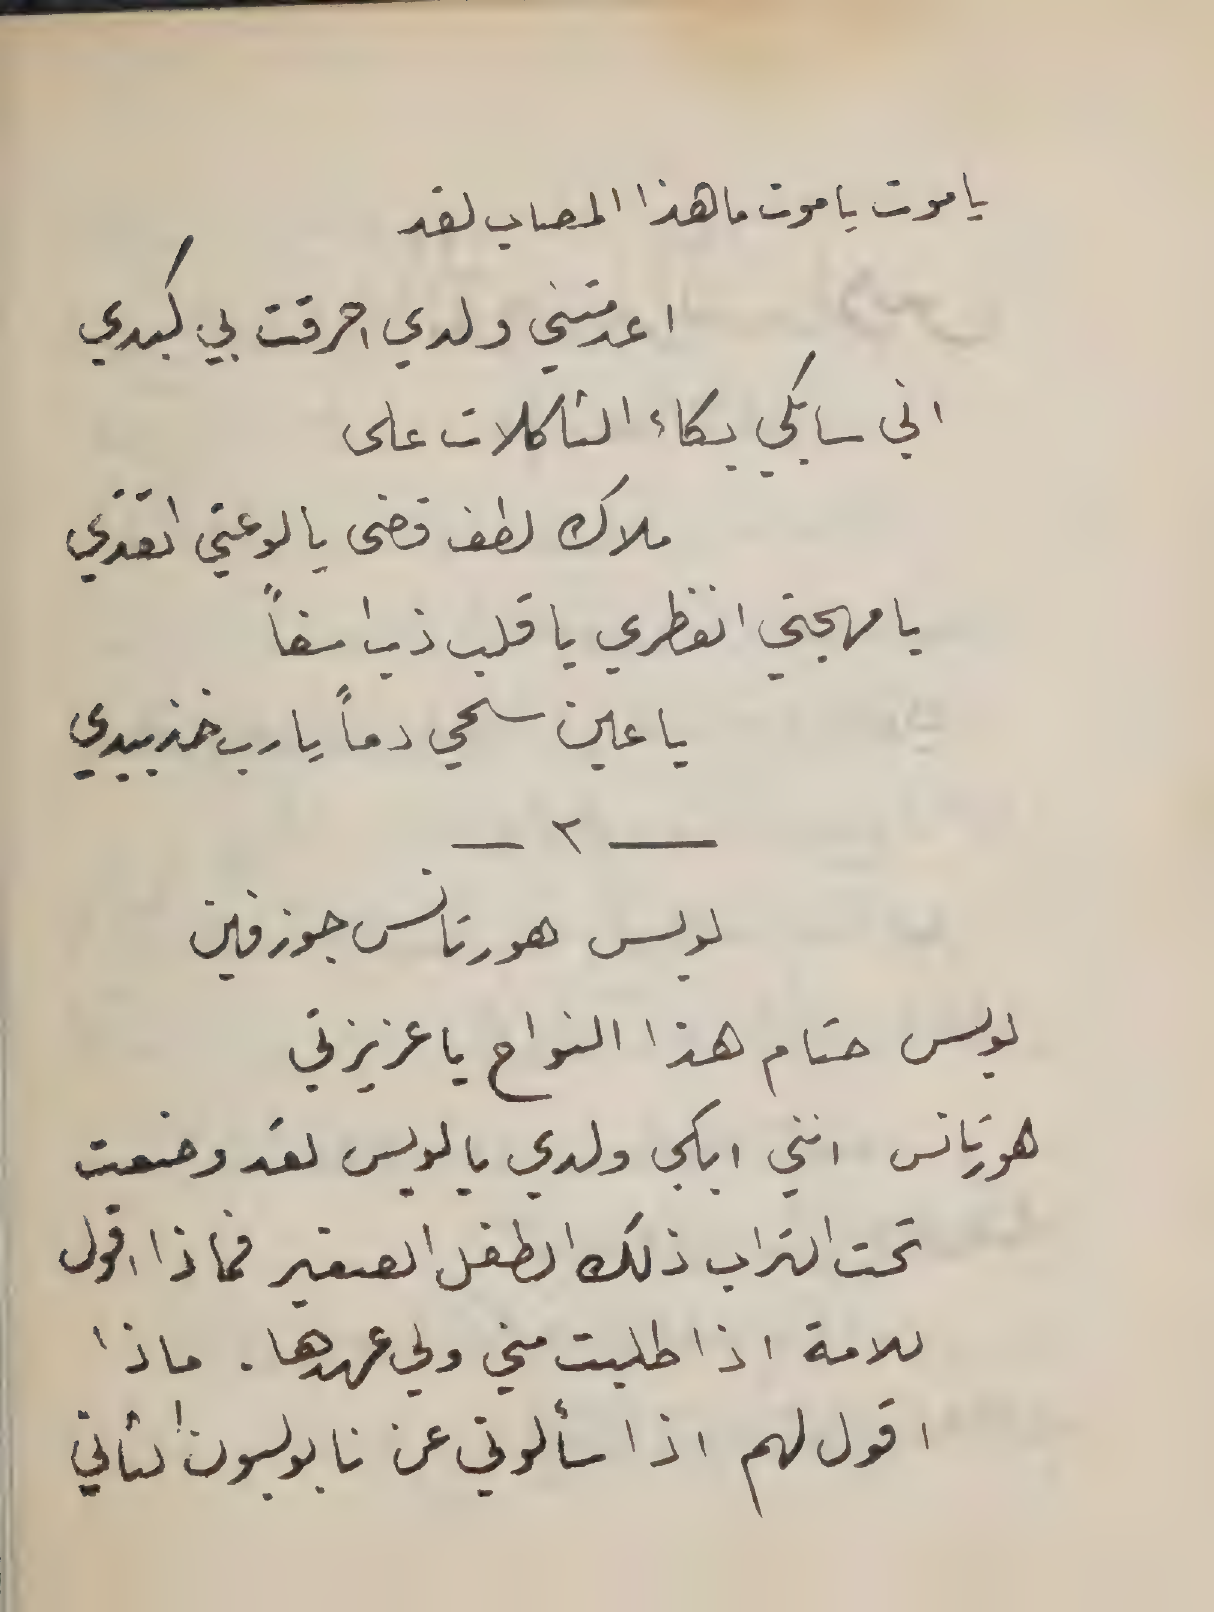 ياموت ياموت ماهذا المصاب لقد
اعدمتني ولدي احرقت بي كبدي
اني سابكي بكاء الثاكلات على
ملاك لطف قضى يا لوعتي اتقدي
يا مهجتي انفطري يا قلب ذب اسفاً
يا عين سحي دماً يارب خذ بيدي
— ٢ —
لويس هورتانس جوزفين
لويس حتام هذا النواح يا عزيزتي
هورتانس انني ابكي ولدي يا لويس لقد وضعت
تحت التراب ذلك الطفل الصغير فماذا اقول
للامة اذا طلبت مني ولي عهدها . ماذا
اقول لهم اذا سألوني عن نابوليون الثاني